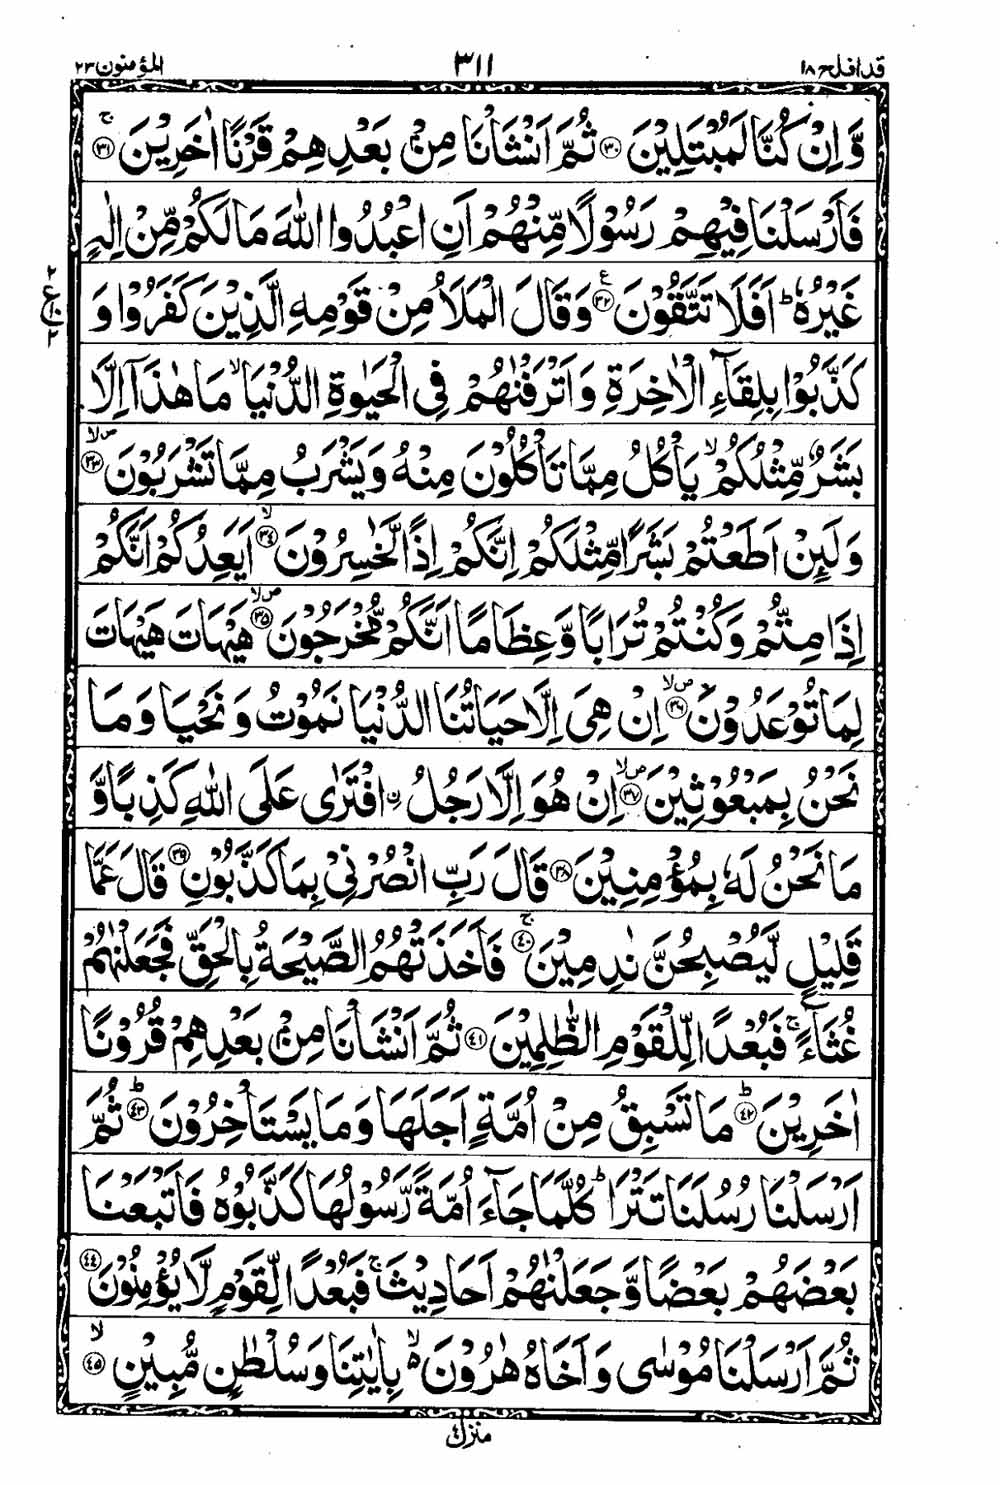 قد افلح ١٨
٣١١
المؤمنون ٢٣
وَّاِنْ كُنَّا لَمُبْتَلِيْنَ ﴿٣٠﴾ ثُمَّ اَنْشَاْنَا مِنْۢ بَعْدِهِمْ قَرْنًا اٰخَرِيْنَ ۚ﴿٣١﴾
فَاَرْسَلْنَا فِيْهِمْ رَسُوْلًا مِّنْهُمْ اَنِ اعْبُدُوا اللّٰهَ مَا لَكُمْ مِّنْ اِلٰهٍ
غَيْرُهٗ ؕ اَفَلَا تَتَّقُوْنَ ﴿٣٢﴾ ع وَقَالَ الْمَلَاُ مِنْ قَوْمِهِ الَّذِيْنَ كَفَرُوْا وَ
٢ ع ١٠ ٢
كَذَّبُوْا بِلِقَآءِ الْاٰخِرَةِ وَاَتْرَفْنٰهُمْ فِى الْحَيٰوةِ الدُّنْيَا ۙ مَا هٰذَاۤ اِلَّا
بَشَرٌ مِّثْلُكُمْ ۙ يَاْكُلُ مِمَّا تَاْكُلُوْنَ مِنْهُ وَيَشْرَبُ مِمَّا تَشْرَبُوْنَ ۪ۙ﴿٣٣﴾
وَلَئِنْ اَطَعْتُمْ بَشَرًا مِّثْلَكُمْ اِنَّكُمْ اِذًا لَّخٰسِرُوْنَ ۙ﴿٣٤﴾ اَيَعِدُكُمْ اَنَّكُمْ
اِذَا مِتُّمْ وَكُنْتُمْ تُرَابًا وَّعِظَامًا اَنَّكُمْ مُّخْرَجُوْنَ ۪ۙ﴿٣٥﴾ هَيْهَاتَ هَيْهَاتَ
لِمَا تُوْعَدُوْنَ ۪ۙ﴿٣٦﴾ اِنْ هِىَ اِلَّا حَيَاتُنَا الدُّنْيَا نَمُوْتُ وَنَحْيَا وَمَا
نَحْنُ بِمَبْعُوْثِيْنَ ۪ۙ﴿٣٧﴾ اِنْ هُوَ اِلَّا رَجُلُ ِۨ افْتَرٰى عَلَى اللّٰهِ كَذِبًا وَّ
مَا نَحْنُ لَهٗ بِمُؤْمِنِيْنَ ﴿٣٨﴾ قَالَ رَبِّ انْصُرْنِىْ بِمَا كَذَّبُوْنِ ﴿٣٩﴾ قَالَ عَمَّا
قَلِيْلٍ لَّيُصْبِحُنَّ نٰدِمِيْنَ ۚ﴿٤٠﴾ فَاَخَذَتْهُمُ الصَّيْحَةُ بِالْحَقِّ فَجَعَلْنٰهُمْ
غُثَآءً ۚ فَبُعْدًا لِّلْقَوْمِ الظّٰلِمِيْنَ ﴿٤١﴾ ثُمَّ اَنْشَاْنَا مِنْۢ بَعْدِهِمْ قُرُوْنًا
اٰخَرِيْنَ ؕ﴿٤٢﴾ مَا تَسْبِقُ مِنْ اُمَّةٍ اَجَلَهَا وَمَا يَسْتَاْخِرُوْنَ ؕ﴿٤٣﴾ ثُمَّ
اَرْسَلْنَا رُسُلَنَا تَتْرَا ؕ كُلَّمَا جَآءَ اُمَّةً رَّسُوْلُهَا كَذَّبُوْهُ فَاَتْبَعْنَا
بَعْضَهُمْ بَعْضًا وَّجَعَلْنٰهُمْ اَحَادِيْثَ ۚ فَبُعْدًا لِّقَوْمٍ لَّا يُؤْمِنُوْنَ ﴿٤٤﴾
ثُمَّ اَرْسَلْنَا مُوْسٰى وَاَخَاهُ هٰرُوْنَ ۙ۬ بِاٰيٰتِنَا وَسُلْطٰنٍ مُّبِيْنٍ ۙ﴿٤٥﴾
منزل ٤